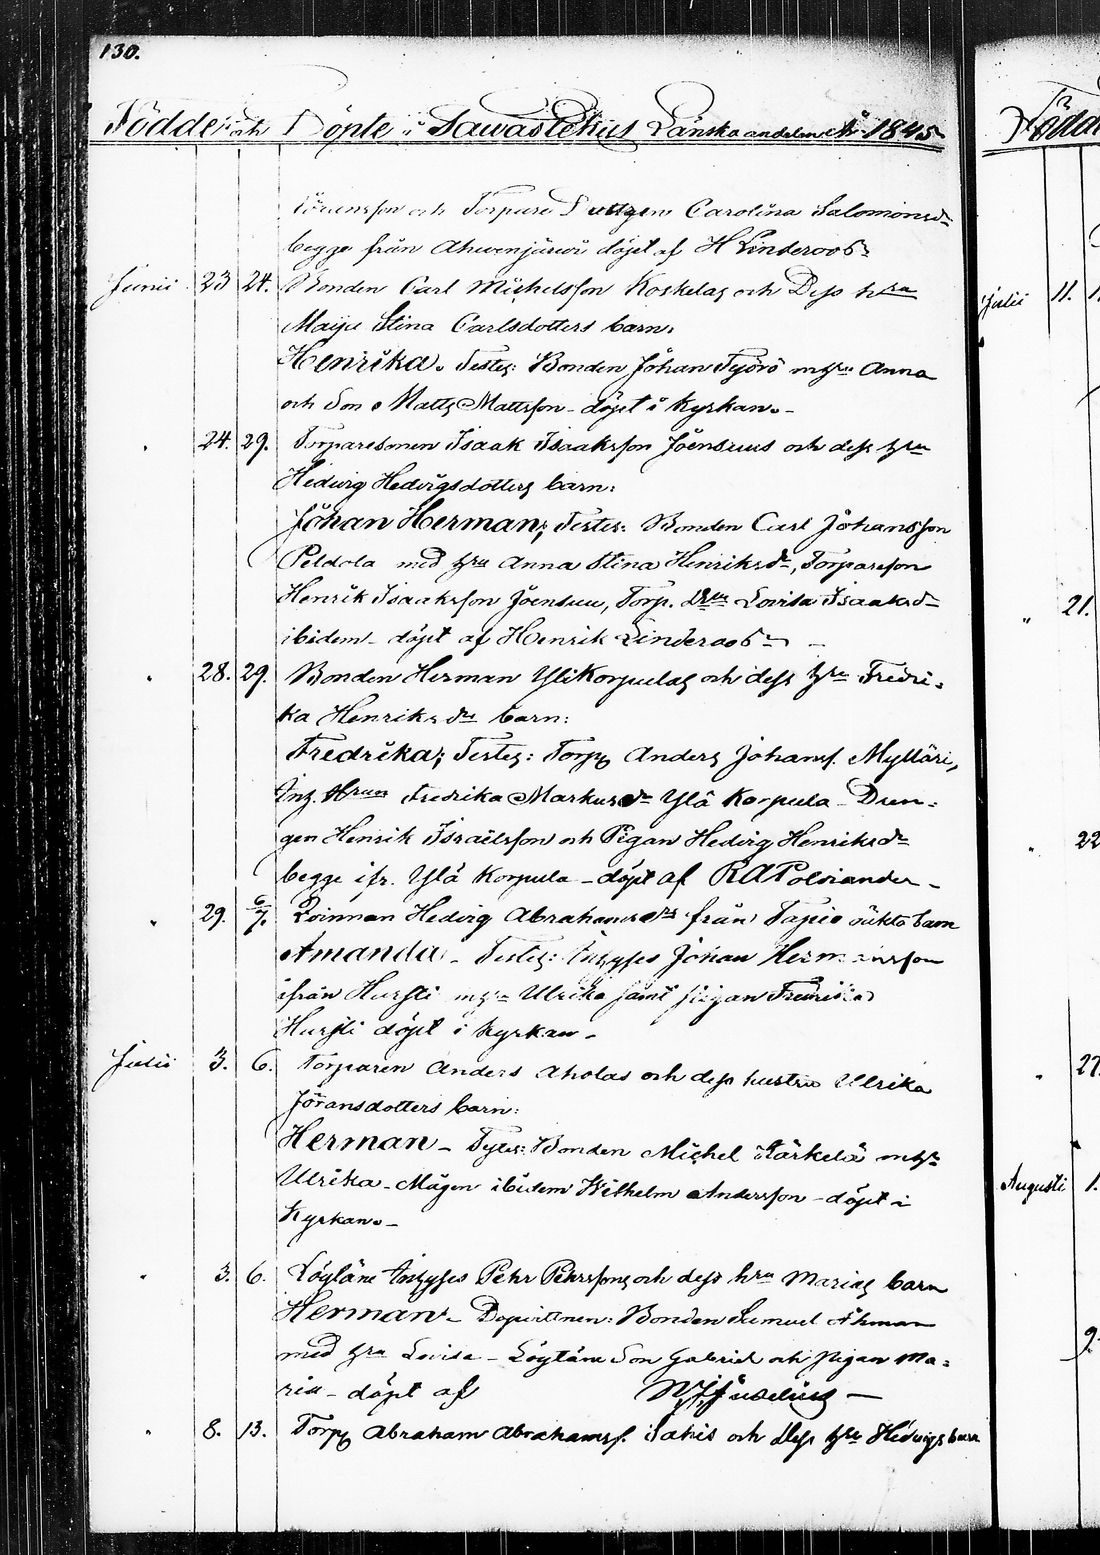 130.
Födde och Döpte i Sawastekus Länska andelen År 1845
Göransson och Torpare Carolina Salomonsdr
begge från Ahwenjärwi döpt af H Linderoos
Junii 23 24. Bonden Carl Michelsson Koskelas och Dess hru
Maija Stina Carlsdotters barn:
Henrika. Testes: Bonden Johan Työrö mhru Anna
och Son Matts Mattsson - döpt i Kyrkan. -
24. 29. Torparesonen Isaak Isaaksson Joensuus och dess hru
Hedvig Hedvigsdotters barn:
Johan Herman; Testes: Bonden Carl Johansson
Peldola med hru Anna Stina Henriksdr, Torpareson
Henrik Isaaksson Joensuu, Torp. Drn Lovisa Isaaksdr
ibidem - döpt af Henrik Linderoos -
" 28. 29. Bonden Herman Ylikorpulas och dess hru Fredri-
ka Henriksdrs barn:
Fredrika; Testes: Torp Anders Johanss. Mylläri,
Inh. Hrun Fredrika Markusdr Ylä Korpula - Dren-
gen Henrik Israelsson och Pigan Hedvig Henriksdr
begge ifr. Ylä Korpula - döpt af R A Polviander -
" 29. 6/7. Qvinnan Hedvig Abrahamsdrs från Tapio oäkta barn
Amanda - Testes: Inhyses Johan Hermansson
ifrån Hursti mhru Ulrika samt pigan Fredrika
Hursti döpt i kyrkan -
Julii 3. 6. Torparen Anders Aholas och dess hustru Ulrika
Göransdotters barn:
Herman - Tstes: Bonden Michel Härkelä mhru
Ulrika - Mågen ibidem Wilhelm Andersson - döpt i
Kyrkan. -
" 3. 6. Löytäne Inhyses Pehr Pehrssons och dess hru Marias barn
Herman - Dopvittnen: Bonden Samuel Åhman
med hru Lovisa - Löytäne Son Gabriel och pigan Ma-
ria - döpt af
" 8. 13. Torp Abraham Abrahamss. Sakis och Dess hru Hedvigs barn
Födde
Julii 11.
" 21.
" 22
" 27.
Augusti 1.
9.